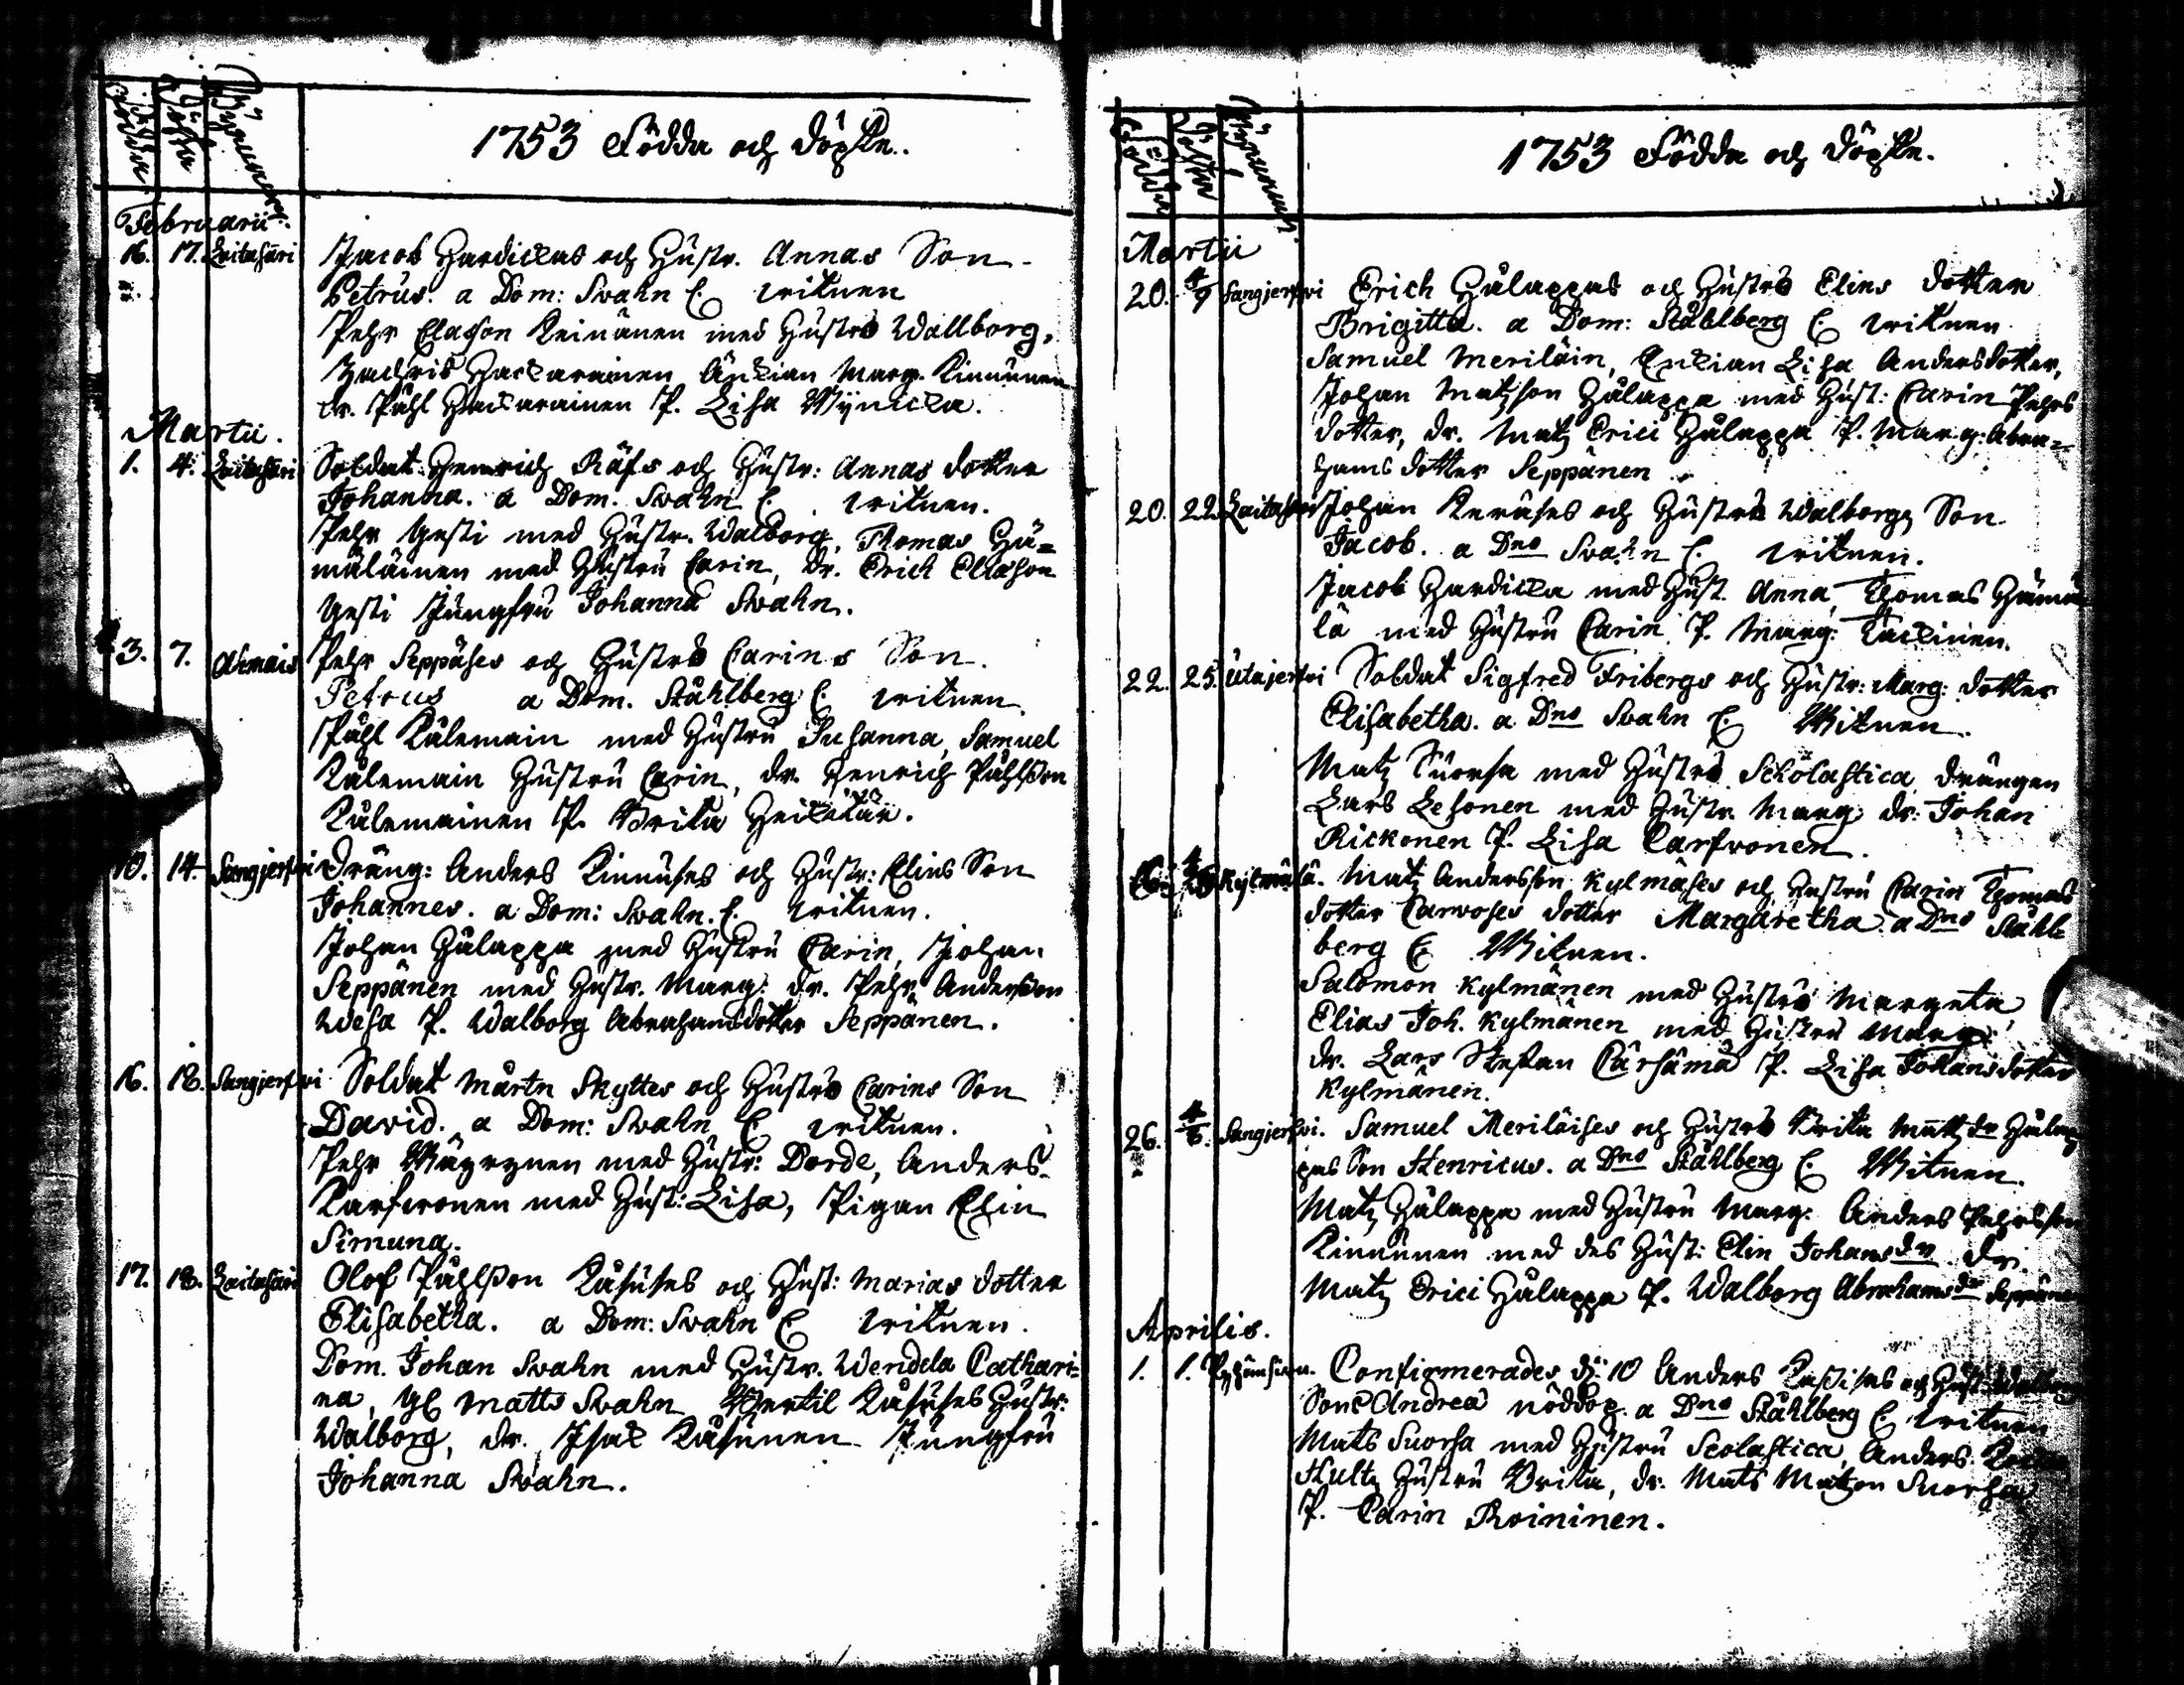 Födde
Döpte
Byarnas
1753 Födda och döpte.
Februarii.
16. 17. Laitasari Jacob Hardickas och Hustr. Annas Son
Petrus. a Dom: Swahn C. vitnen
Pehr Elacson Keinänen med Hustro Wallborg,
Zachris Zackarainen Änkian Marg. Kinnunen
dr. Påhl Zackarainen P. Lisa Mÿnicka.
Martii.
1. 4. Laitasari Soldat Henrich Räfs och Hustr: Annas dotter
Johanna. a Dom. Swahn C. vitnen.
Pehr Yesti med Hustr. Walborg, Thomas Hä=
mäläinen med Hustru Carin, dr. Erich Ellason
Yesti Jungfru Johanna Swahn.
3. 7. Ahmais Pehr Seppäses och Hustro Carins Son.
Petrus a Dom. Ståhlberg C. vitnen
Påhl Kälemain med Hustru Susanna, Samuel
Kälemain Hustru Carin, dr. Henrich Påhlsson
Kälemainen P. Brita Heikitär.
10. 14. Sangjerfwi Dräng: Anders Kinnuses och Hustr: Elins Son
Johannes. a Dom: Swahn. C. vitnen.
Johan Hålappa med Hustru Carin, Johan
Seppänen med Hustr. Marg: dr. Pehr Andersson
Wesa P. Walborg Abrahamsdotter Seppänen.
16. 18. Sangjerfwi Soldat Mårtn Skyttes och Hustro Carins Son
David. a Dom: Swahn C. vitnen.
Pehr Mäyrynen med Hustr: Dorde, Anders
Karfwonen med Hust: Lisa, Pigan Elin
Simuna.
17. 18. Laitasari Olof Påhlsson Käsuses och Hust: Marias dotter
Elisabetha. a Dom: Swahn C vitnen.
Dom. Johan Swahn med Hustr. Wendela Cathari-
na, Yl Matts Swahn Bertil Käsuses Hustr:
Walborg, dr. Isac Käsunen Jungfru
Johanna Swahn.
Födde
Döpte
Byarnas
1753 Födda och döpte.
Martii
20. 4/9 Sangjerfwi Erich Hålappas och Hustro Elins dotter
Brigitta. a Dom: Ståhlberg C. vitnen
Samuel Meriläin, Enkian Lisa Andersdotter,
Johan Matzson Hålappa med Hust: Carin Pehrs
dotter, dr. Matz Erici Hålappa P. Marg: Abra=
hams dotter Seppänen
20. 22. Laitasari Johan Keräses och Hustro Walborgs Son
Jacob. a Dno Swahn C. vitnen.
Jacob Hardicka med Hust. Anna, Thomas Hämä
lä med Hustru Carin P. Marg: Tackinen.
22. 25. Utajerfwi Soldat Sigfred Fribergs och Hustr: Marg: dotter
Elisabetha. a Dno Swahn C. Witnen.
Matz Suorsa med Hustro Scholastica, Drängen
Lars Lesonen med Hustr. Marg: dr. Johan
Rickonen P. Lisa Carfvonen.
Kylmälä. Matz Andersson Kylmäses och Hustru Carin Thomas
dotter Carvoses dotter Margaretha. a Dno Ståhl=
berg C. Witnen.
Salomon Kylmänen med Hustro Margeta
Elias Joh. Kylmänen med Hustru Marg:
dr. Lars Stefan Cärsämä P. Lisa Johansdotter
Kylmänen.
26. 4/8. Sangjerfwi. Samuel Meriläises och Hustro Brita Mattsdr Hålap
pas Son Henricus. a Dno Ståhlberg C. Witnen.
Matz Hålappa med Hustru Marg: Anders Pehrsson
Kinnunen med des Hust: Elin Johansdr dr.
Matz Erici Hålappa P. Walborg Abrahamsdr Seppänen
Aprilis.
1. 1. Confirmerades d: 10 Anders och Hust:
Son Andrea nöddop. a Dno Ståhlberg C. vitnen
Mats Suorsa med Hustru Scolastica, Anders
Hultz Hustru Brita, dr. Mats Matzon Suorsa
P. Carin Roininen.